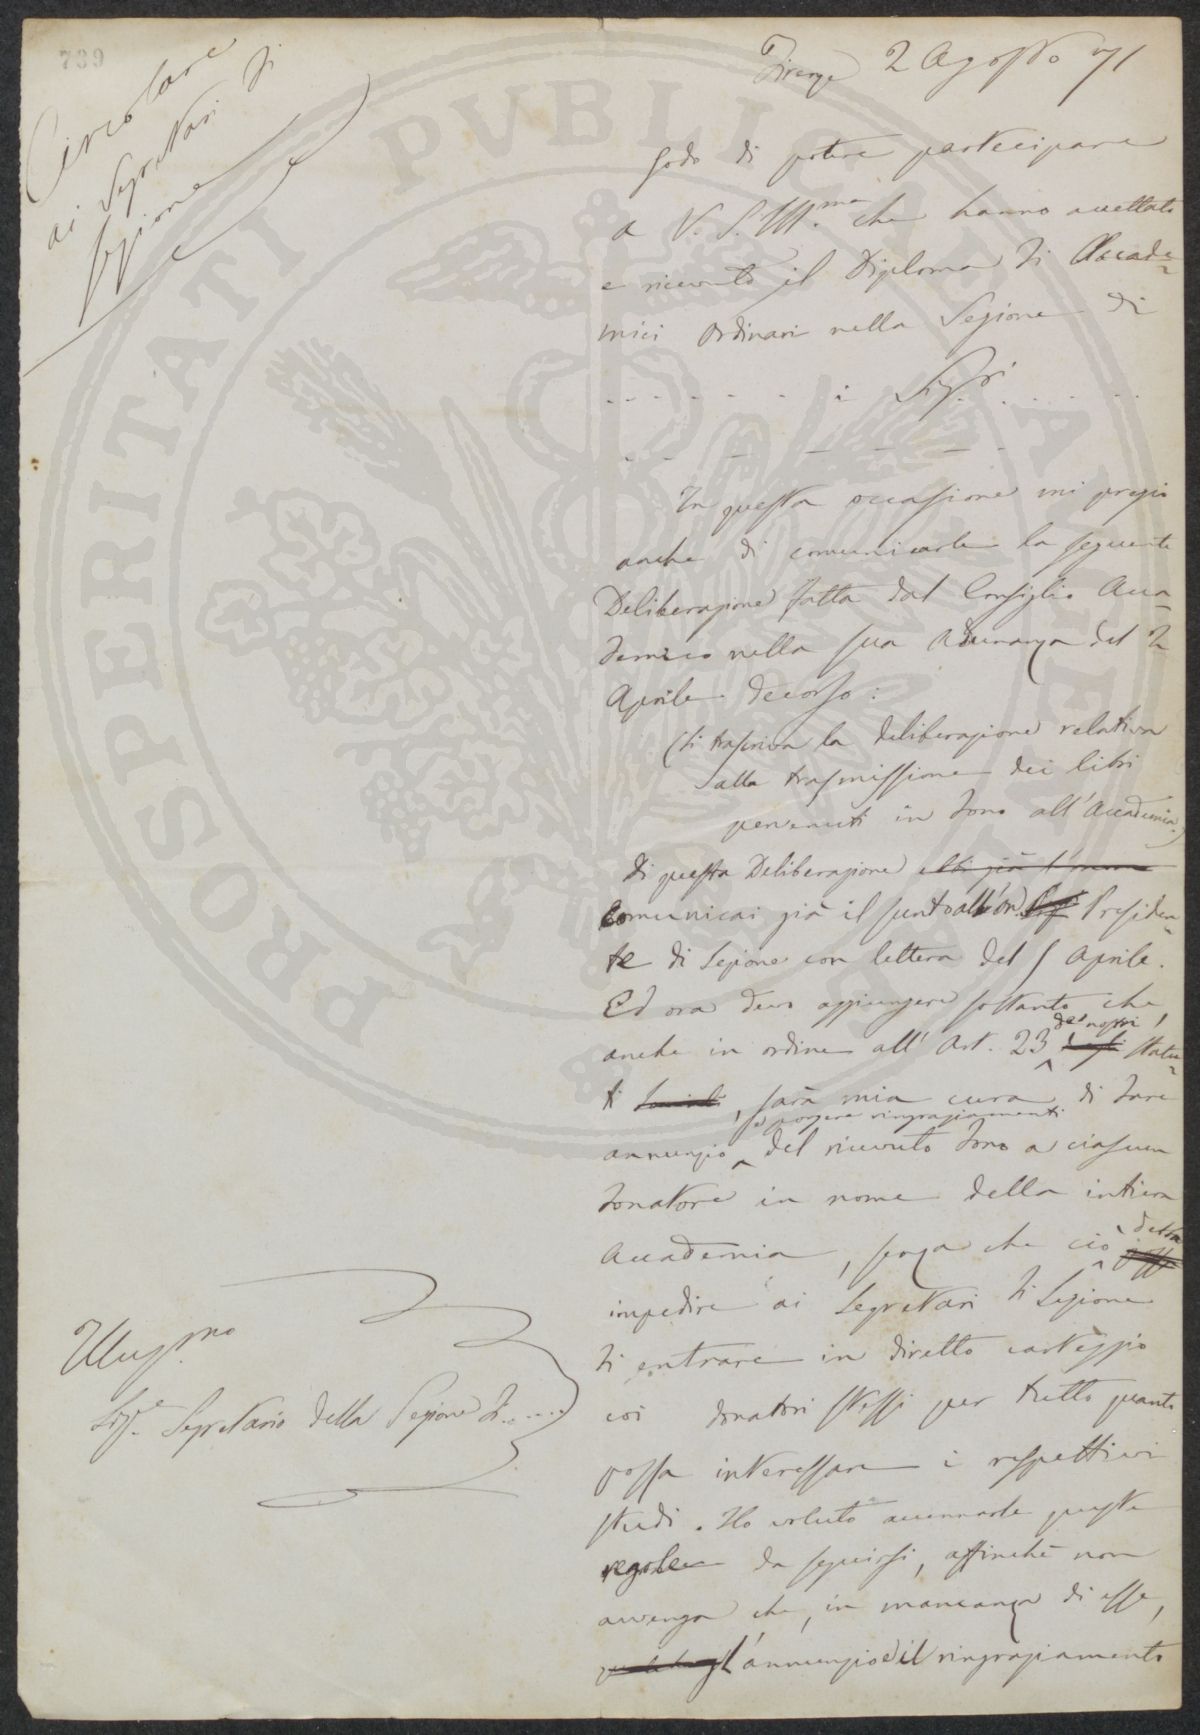 739
Circolare
ai Segretari di
Sezione
Firenze 2 Agosto 71
Godo di potere partecipare
a V. S. Ill.ma che hanno accettato
e ricevuto il Diploma di Accade-
mici Ordinari nella Sezione di
- - - - - - i Sigri. . . . . .
- - - - - - -
In questa occasione mi pregio
anche di comunicarle la seguente
Deliberazione fatta dal Consiglio Acca-
demico nella sua Adunanza del 2
Aprile decorso:
(Si trascriva la deliberazione relativa
alla trasmissione dei libri
pervenuti in dono all'Accademia.)
Di questa Deliberazione
comunicai già il sunto all'on. Presiden-
te di Sezione con lettera del 5 Aprile.
Ed ora devo aggiungere soltanto che,
anche in ordine all'Art. 23 de' nostri Statu-
ti, sarà mia cura di dare
e porgere ringraziamenti
annunzio del ricevuto dono a ciascun
donatore in nome della intiera
Accademia, senza che ciò debba
impedire ai Segretari di Sezione
di entrare in diretto carteggio
coi donatori stessi per tutto quanto
possa interessare i respettivi
studi. Ho voluto accennarle queste
regole da seguirsi, affinchè non
avvenga che, in mancanza di esse,
l'annunzio ed il ringraziamento
Illustrmo
Sigre. Segretario della Sezione di......
PROSPERITATI PVBLICAE AVGENDAE